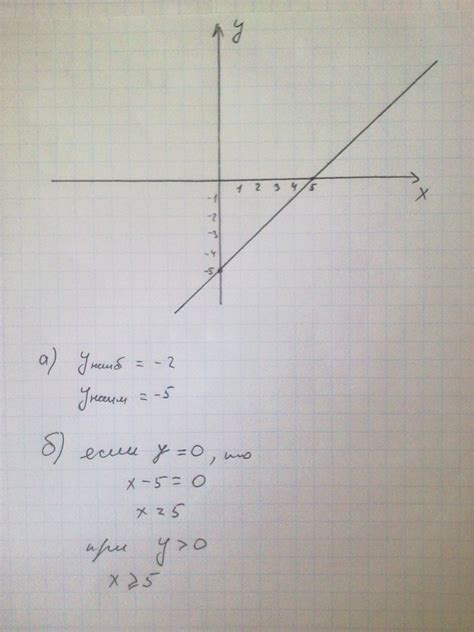 y
1 2 3 4 5
x
-1
-2
-3
-4
-5
а) yнаиб = -2
yнаим = -5
б) если y=0, то
x-5=0
x=5
при y>0
x⩾5